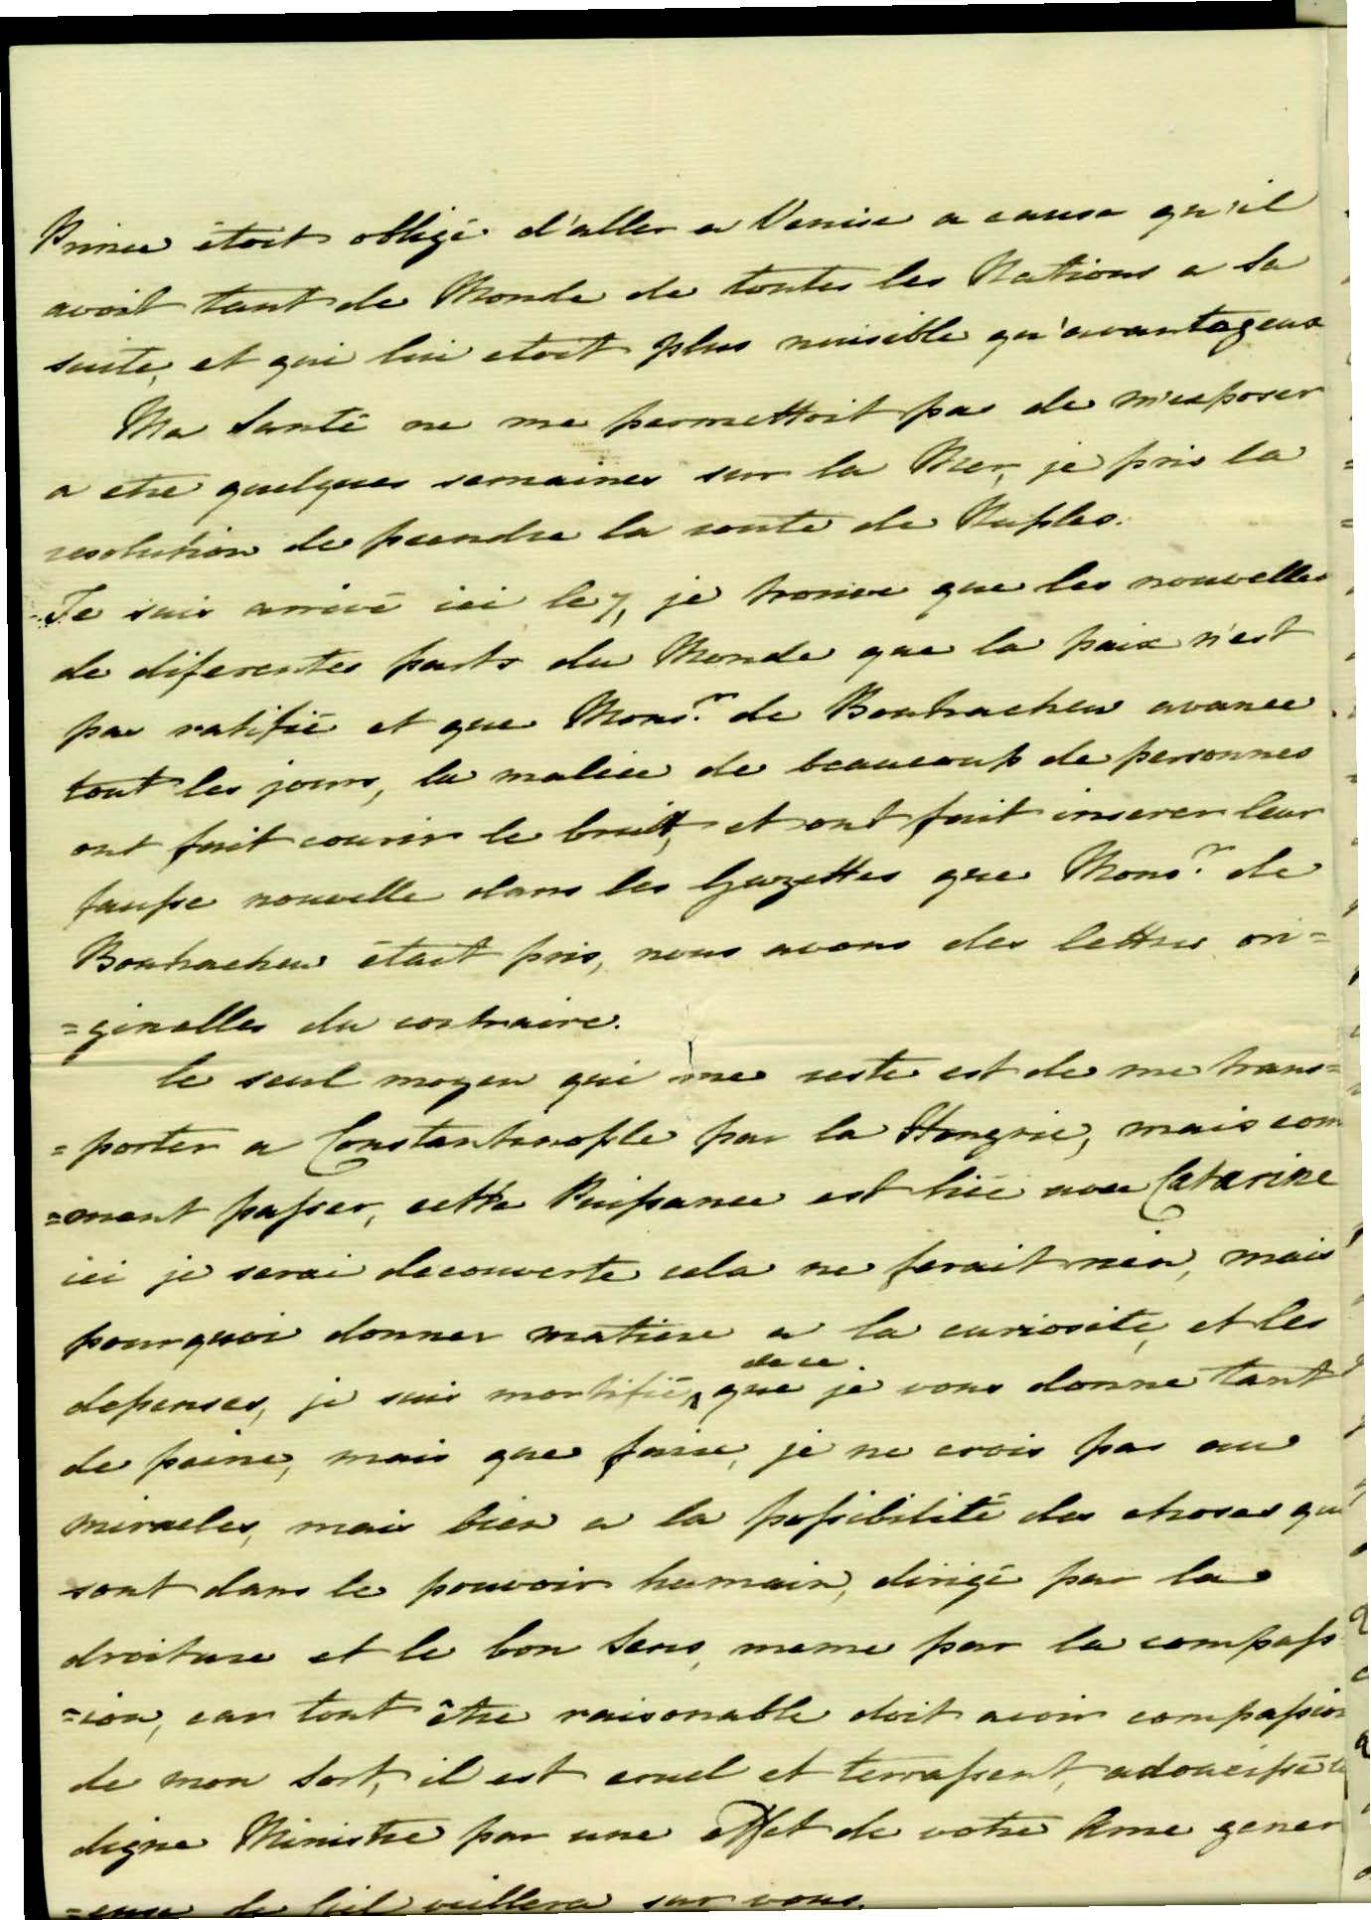 Prince étoit obligé d'aller a Venise a cause qu'il
avoit tant de Monde de toutes les Nations a sa
suite, et qui lui etoit plus nuisible qu'avantageux
Ma Santé ne me permettoit pas de m'exposer
a etre quelques semaines sur la Mer, je pris la
resolution de prendre la route de Naples.
Je suis arrivé ici le 7, je trouve que les nouvelles
de diferentes parts du Monde que la paix n'est
pas ratifié et que Mons.r de Bouhacheu avance
tout les jours, la malice de beaucoup de personnes
ont fait courir le bruit, et ont fait inserer leur
fausse nouvelle dans les Gazettes que Mons.r de
Bouhacheu étoit pris, nous avons des lettres ori=
=ginelles du contraire.
le seul moyen qui me reste est de me trans=
=porter a Constantinople par la Hongrie, mais com
=ment passer, cette Puissance est liée avec Catarine
ici je serai decouverte cela ne ferait rien, mais
pourquoi donner matiere a la curiosite, et les
depenses, je suis mortifié de ce que je vous donne tant
de peine, mais que faire, je ne crois pas au
miracles, mais bien a la possibilité des choses qui
sont dans le pouvoir humain, dirigé par la
droiture et le bon Sens, meme par la compass
=ion, car tout être raisonable doit avoir compassion
de mon Sort, il est cruel et terrassent, adoucissé le
digne Ministre par une effet de votre Ame gener
=euse le Ciel veillera sur vous.